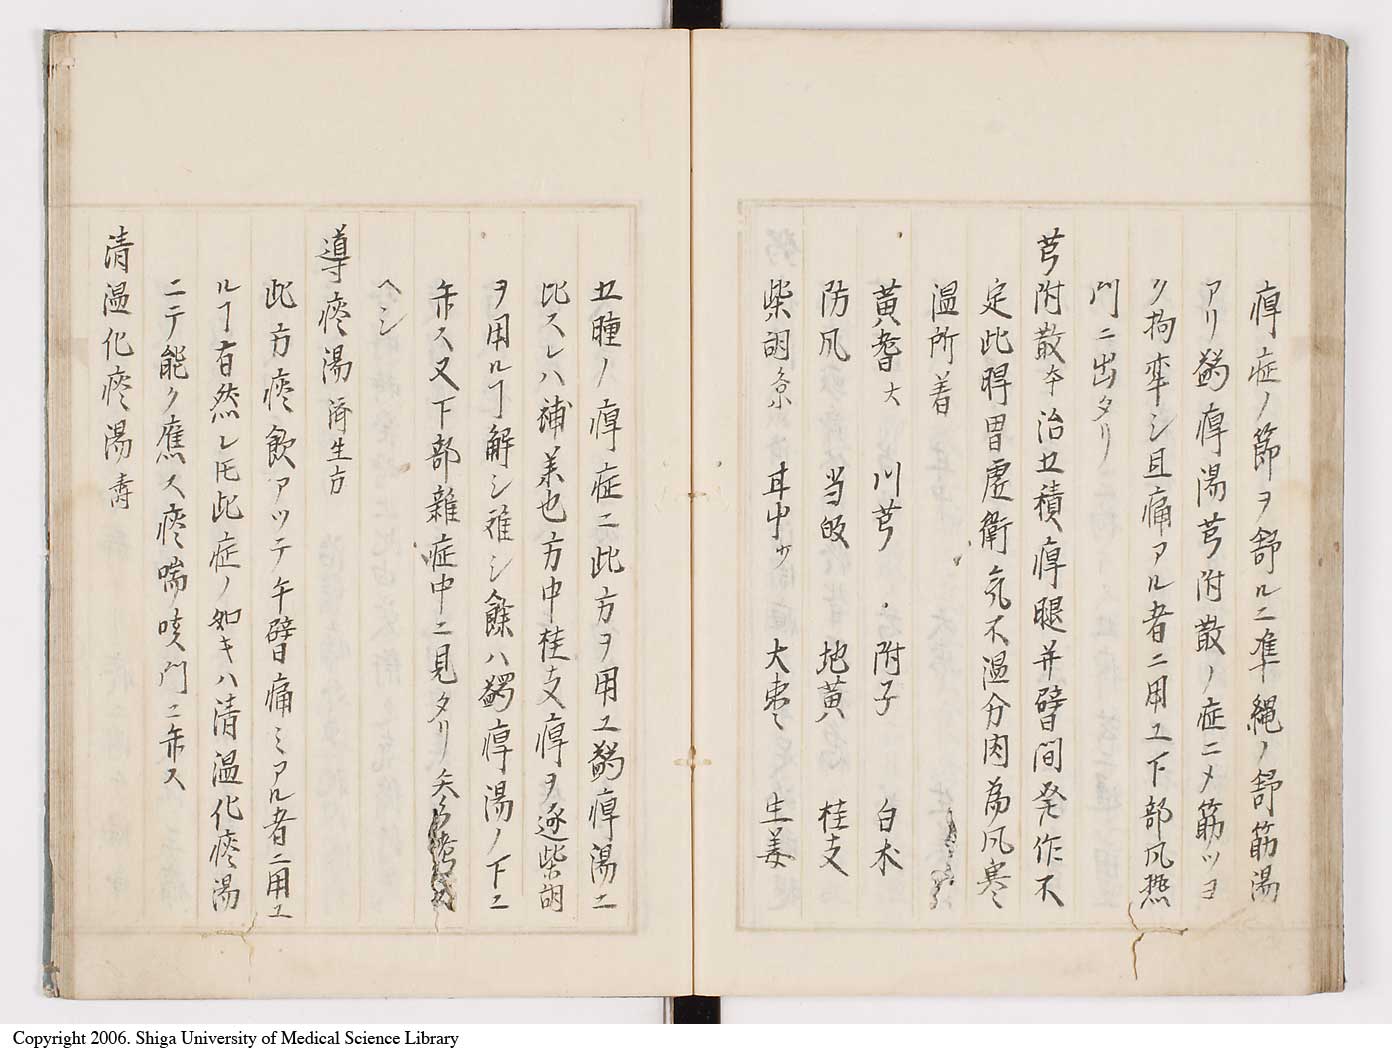 痺症ノ節ヲ舒ルニ準縄ノ舒筋湯
アリ蠲痺湯芎附散ノ症ニメ筋ツヨ
ク拘牽シ且痛アル者ニ用ユ下部風熱
門ニ出タリ
芎附散本治五積痺腿并臂間発作不
定此脾胃虚衛気不温分肉為風寒
温所着
黄耆大 川芎 附子 白朮
防风 当皈 地黄 桂支
柴胡 甘中少 大枣 生姜
五種ノ痺症ニ此方ヲ用ユ蠲痺湯ニ
比スレハ補美也方中桂支痺ヲ逐柴胡
ヲ用ルヿ解シ难シ餘ハ蠲痺湯ノ下ニ
弁ス又下部雜症中ニ見タリ
ヘシ
導痰湯済生方
此方痰飲アツテ午臂痛ミアル者ニ用ユ
ルヿ有然レ𪜈此症ノ如キハ清温化痰湯
ニテ能ク應ス痰喘咳門ニ弁ス
清温化痰湯壽
Copyright 2006. Shiga University of Medical Science Library